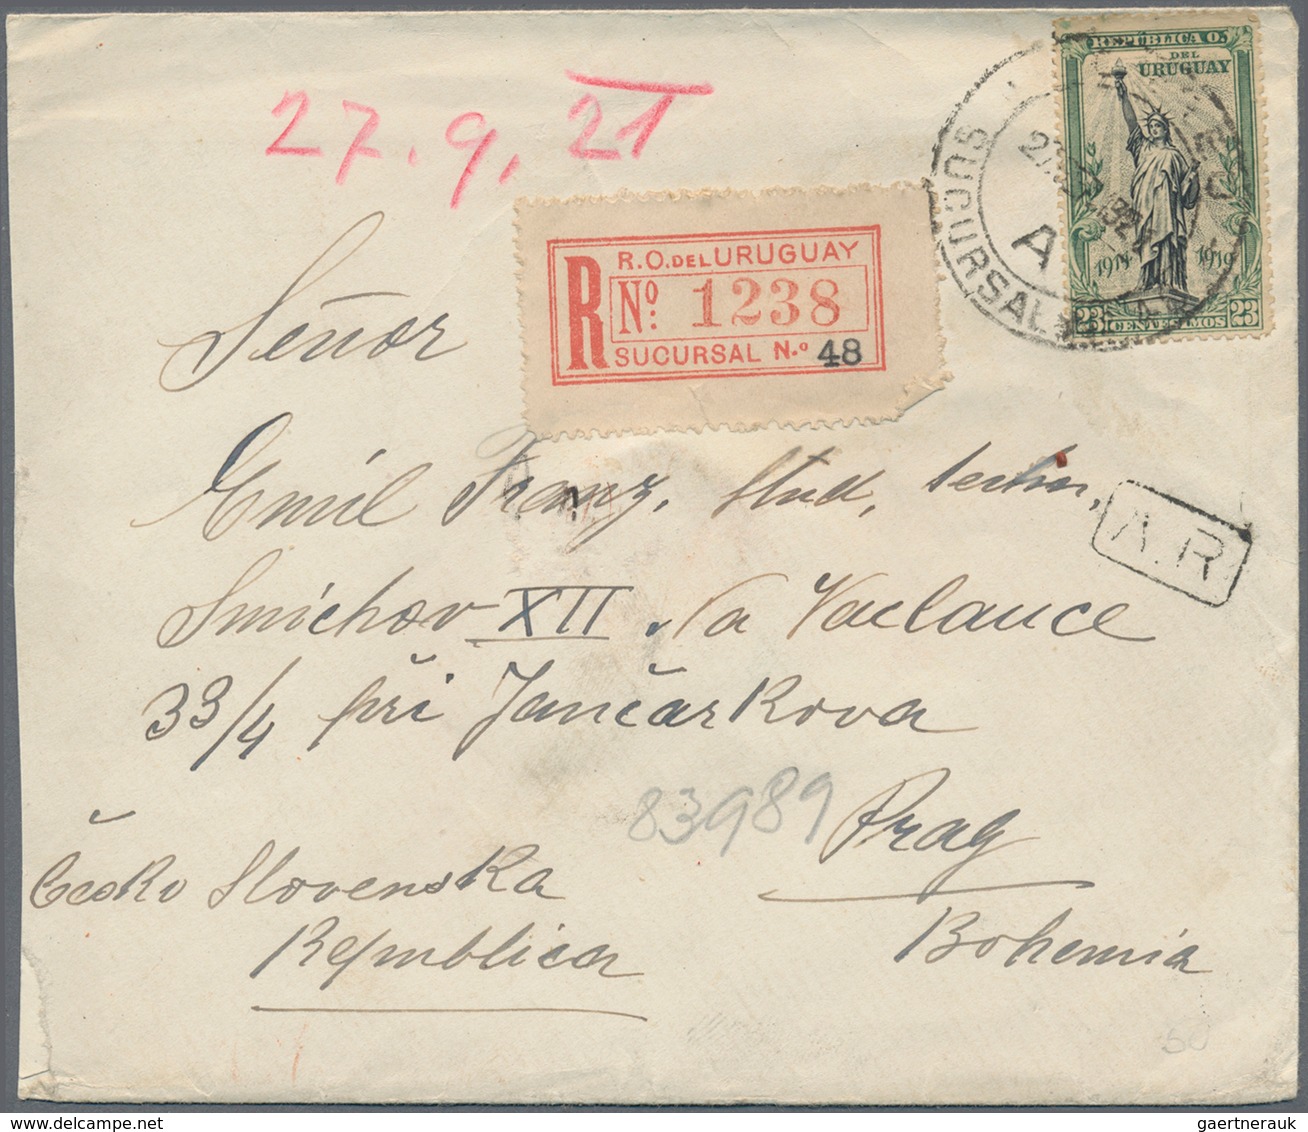 27.9.21
REPÚBLICA O.
DEL
URUGUAY
1914 1919
23 CENTESIMOS 23
SUCURSAL
A
R
R.O. DEL URUGUAY
Nº: 1238
SUCURSAL N.º 48
Señor
Emil Franz, stud. techn,
A.R
Smichov XII, Na Vaclavce
33/4 při Jančarkova
83989
Prag
Česko Slovenska
Republica
Bohemia
50
gaertnerauk@delcampe.net